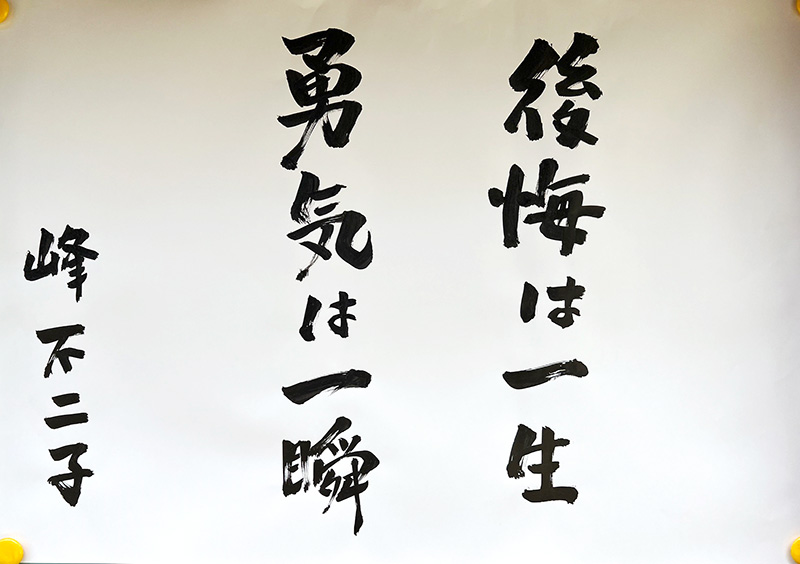 後悔は一生
勇気は一瞬
峰不二子